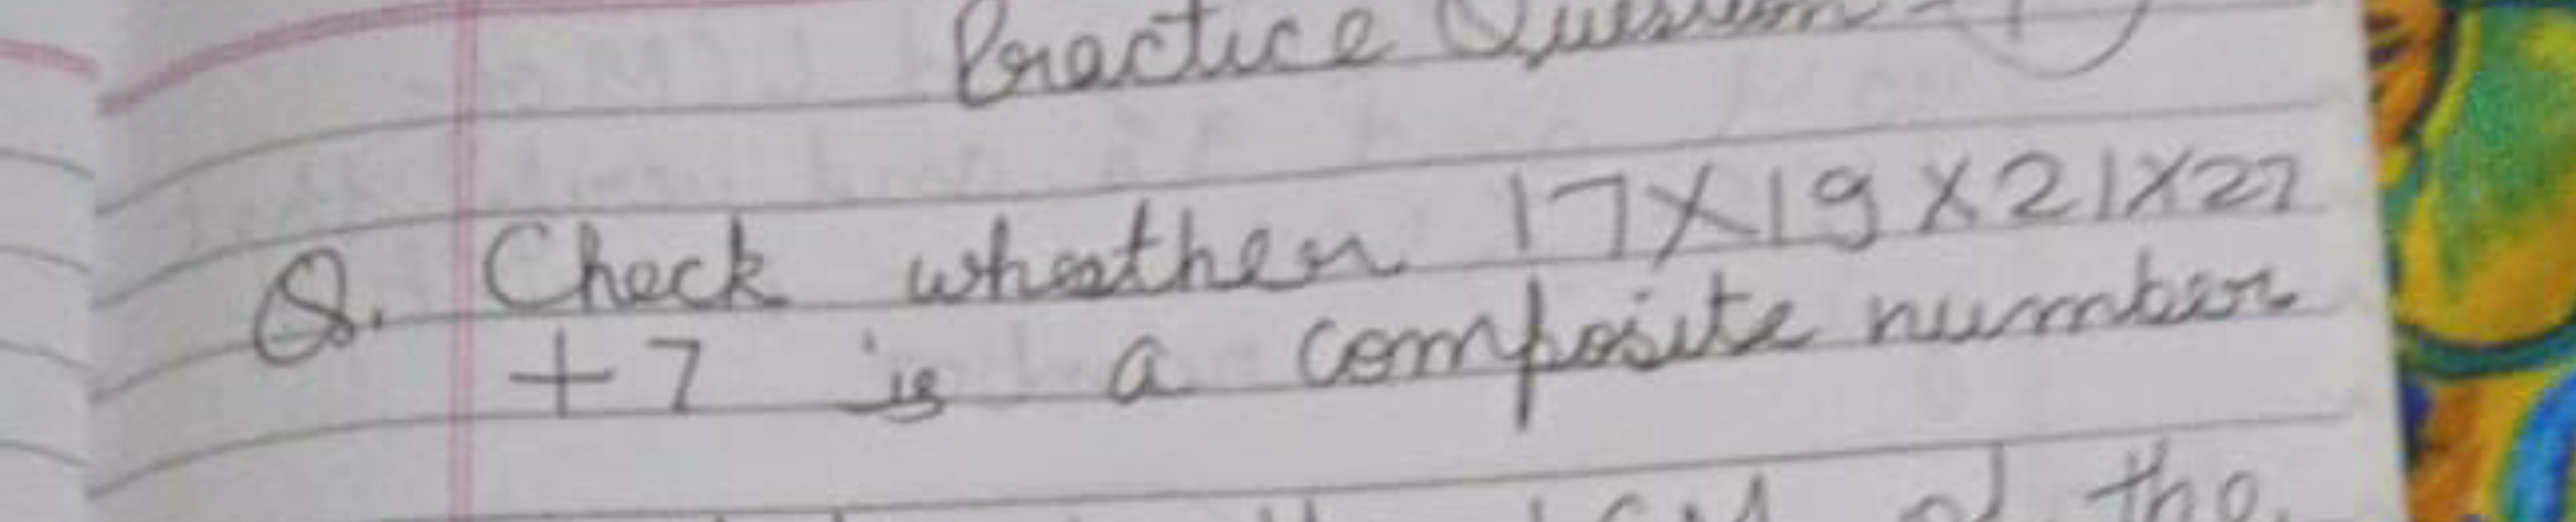 Practice Question - 1
Q. Check wheather 17X19X21X27
+7 is a composite number
LCM of the